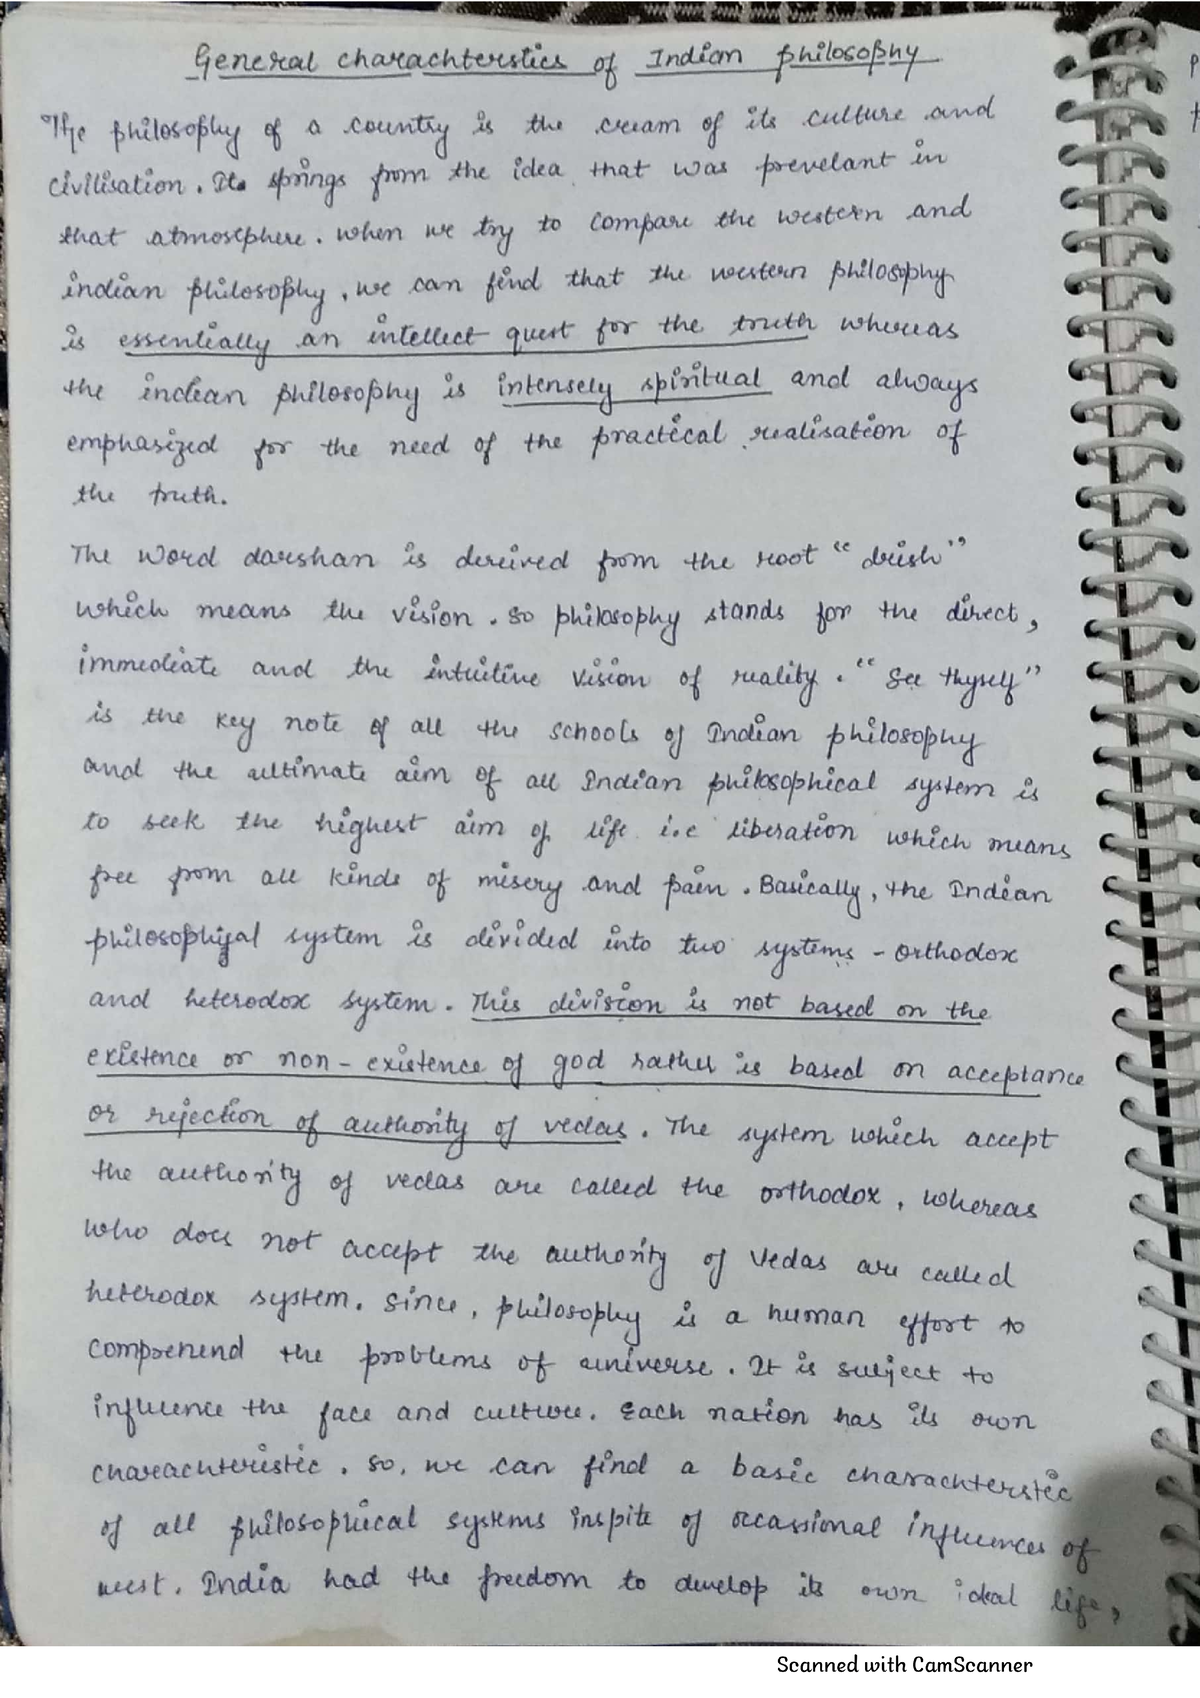 General charachterstics of Indian philosophy
The philosophy of a country is the cream of its culture and
civilisation. It springs from the idea that was prevelant in
that atmosphere. when we try to compare the western and
indian philosophy, we can find that the western philosophy
is essentially an intellect quest for the truth whereas
the indian philosophy is intensely spiritual and always
emphasized for the need of the practical realisation of
the truth.
The word darshan is dereived from the root "drish"
which means the vision. so philosophy stands for the direct,
immediate and the intuitive vision of reality. "See thyself"
is the key note of all the schools of Indian philosophy
and the ultimate aim of all Indian philosophical system is
to seek the highest aim of life i.e liberation which means
free from all kinds of misery and pain. Basically, the Indian
philosophical system is divided into two systems - orthodox
and heterodox system. This division is not based on the
existence or non-existence of god rather is based on acceptance
or rejection of authority of vedas. The system which accept
the authority of vedas are called the orthodox, whereas
who does not accept the authority of Vedas are called
heterodox system. Since, philosophy is a human effort to
comprehend the problems of universe. It is subject to
influence the face and culture. Each nation has its own
charachteristic. So, we can find a basic charachterstic
of all philosophical systems inspite of occassional influences of
west. India had the freedom to develop its own ideal life,
Scanned with CamScanner